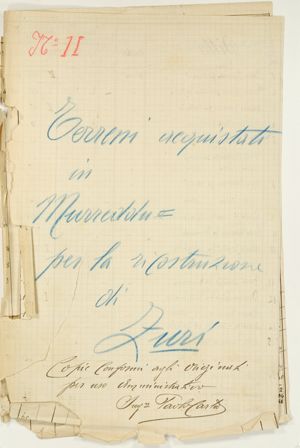 N° II
Terreni acquistati
in
Murreddu=
per la ricostruzione
di
Zuri
Copie conformi agli originali
per uso amministrativo
Ing.